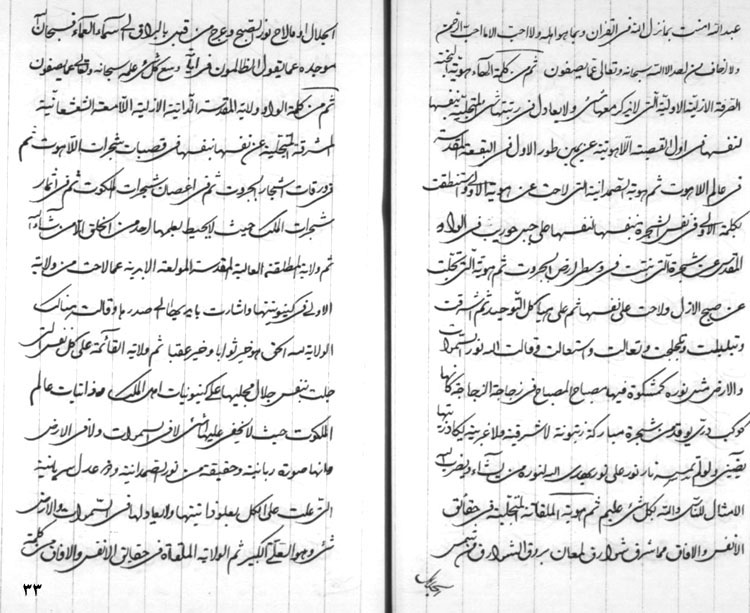 عبد الله امنت بما نزل الله في القران وبما هو اهله ولا احب الا ما احب الرحمن
ولا من بعد الا الله سبحانه وتعالى عما يصفون ثم من كلمة الهاء هوية البحتة
الصرفة الازلية الاولية التي لا يذكر معها شئ ولا يعادل في رتبتها شئ المتجلية بنفسها
لنفسها في اول القصبة اللاهوتية عن يمين طور الاول في البقعة المقدسة
في عالم اللاهوت ثم هوية الصمدانية التي لاحت عن هوية الاولى واستنطقت
بكلمة الاولى في نفس الشجرة بنفسها لنفسها على جبل حوريب في الواد
المقدس عن شجرة التي نبتت في وسط ارض الجبروت ثم هوية التي تجلت
عن صبح الازل ولاحت على نفسها ثم على هياكل التوحيد ثم اشرقت
وتبلبلت وتجلجلت وتعالت واستعالت وقالت الله نور السموات
والارض مثل نوره كمشكوة فيها مصباح المصباح في زجاجة الزجاجة كانها
كوكب دري يوقد من شجرة مباركة زيتونة لا شرقية ولا غربية يكاد زيتها
يضيئ ولو لم تمسسه نار نور على نور يهدي الله لنوره من يشاء ويضرب الله
الامثال للناس والله بكل شئ عليم ثم هوية الملقاة المتجلية في حقائق
الانفس والافاق مما شرق شوارق لمعان بروق الشوارق من شمس
الجلال او ما لاح نور الصبح وعرج من قهر بالبراق الى سماء العماء فسبحان الله
موجده عما يقول الظالمون في اياته وسع كل شئ علمه سبحانه وتعالى عما يصفون
ثم من كلمة الواو ولاية المقدسة الذاتية الازلية اللامعة الشعشعانية
المشرقة المتجلية عن نفسها بنفسها في قصبات شجرات اللاهوت ثم
في ورقات اشجار الجبروت ثم في اغصان شجرات الملكوت ثم في اثمار
شجرات الملك حيث لا يحيط بعلمها احد من الخلق الا من شاء الله
ثم ولاية المطلقة العالية المقدسة المولعة الابدية عما لاحت من ولاية
الاولى في كينونيتها واشارت بايديها الى صدرها وقالت هنالك
الولاية لله الحق هو خير ثوابا وخير عقبا ثم ولاية القائمة على كل نفس التي
جلت بنفس جلال مجليها على كينونيات اهل الملك وذاتيات عالم
الملكوت حيث لا يخفى عليها شئ لا في السموات ولا في الارض
وانها صورة ربانية وحقيقة من نور الصمدانية
التي علت على الكل بعلو ذاتيتها ولا يعادلها في السموات والارض
شئ وهو العلي الكبير ثم الولاية الملقاة في حقايق الانفس والافاق من كلمة
٣٣